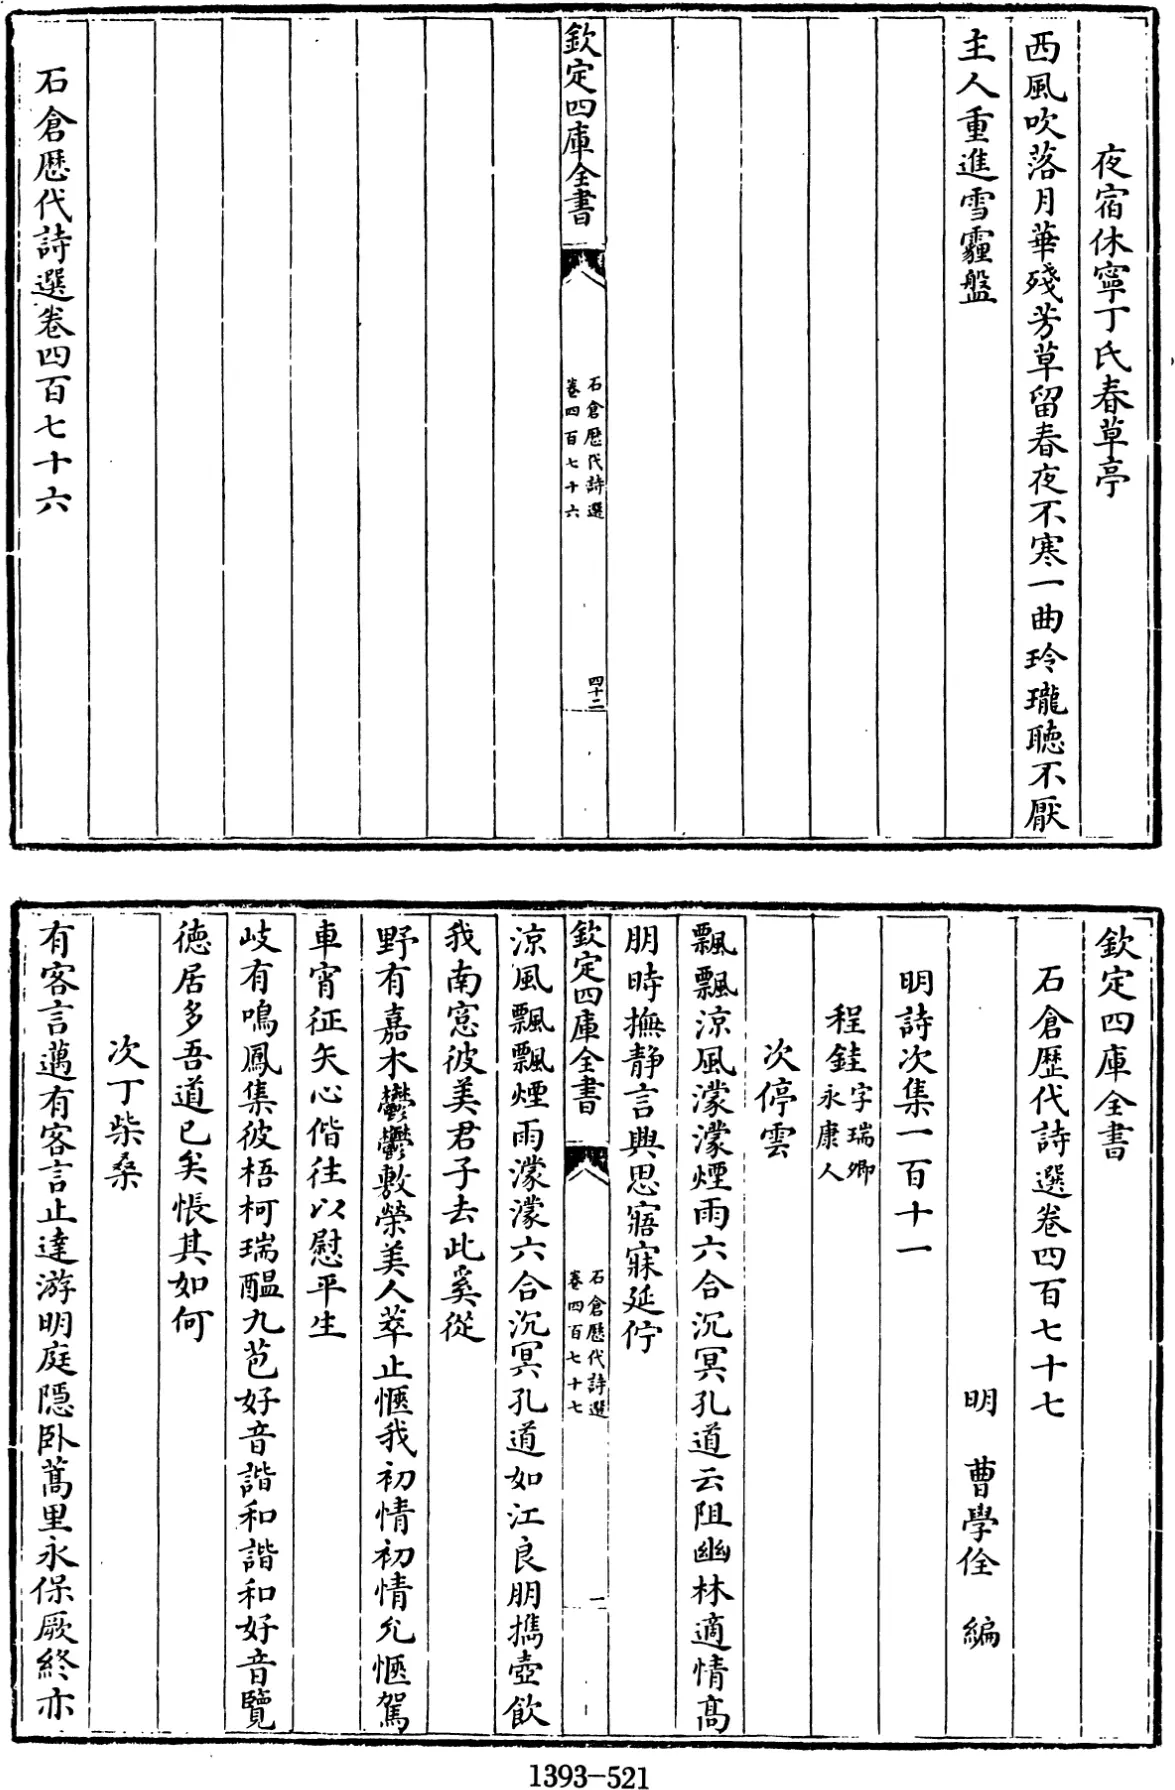 夜宿休寧丁氏春草亭
西風吹落月華殘芳草留春夜不寒一曲玲瓏聽不厭
主人重進雪霾盤
欽定四庫全書
石倉歴代詩選
卷四百七十六
四十二
石倉歴代詩選卷四百七十六
欽定四庫全書
石倉歴代詩選卷四百七十七
明 曹學佺 編
明詩次集一百十一
程銈字瑞卿
永康人
次停雲
飄飄涼風濛濛煙雨六合沉冥孔道云阻幽林適情高
朋時撫靜言興思寤寐延佇
欽定四庫全書
石倉歴代詩選
卷四百七十七
一
涼風飄飄煙雨濛濛六合沉冥孔道如江良朋攜壺飲
我南窓彼美君子去此奚從
野有嘉木鬱鬱敷榮美人萃止愜我初情初情允愜駕
車宵征矢心偕往以慰平生
岐有鳴鳳集彼梧柯瑞醖九苞好音諧和諧和好音覽
德居多吾道已矣悵其如何
次丁柴桑
有客言邁有客言止達游明庭隠卧蒿里永保厥終亦
1393-521